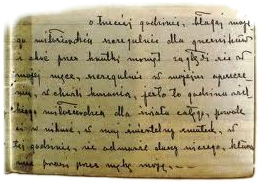 o trzeciej godzinie, błagaj moje-
go miłosierdzia szczególnie dla grzeszników
i choć przez krótki moment zagłębiaj się w
mojej męce, szczególnie w moim opuszcze-
niu, w chwili konania. Jest to godzina wiel-
kiego miłosierdzia dla świata całego, pozwolę
ci wniknąć w mój śmiertelny smutek, w
tej godzinie, nie odmówię duszy niczego, która
mnie prosi przez mękę moją...